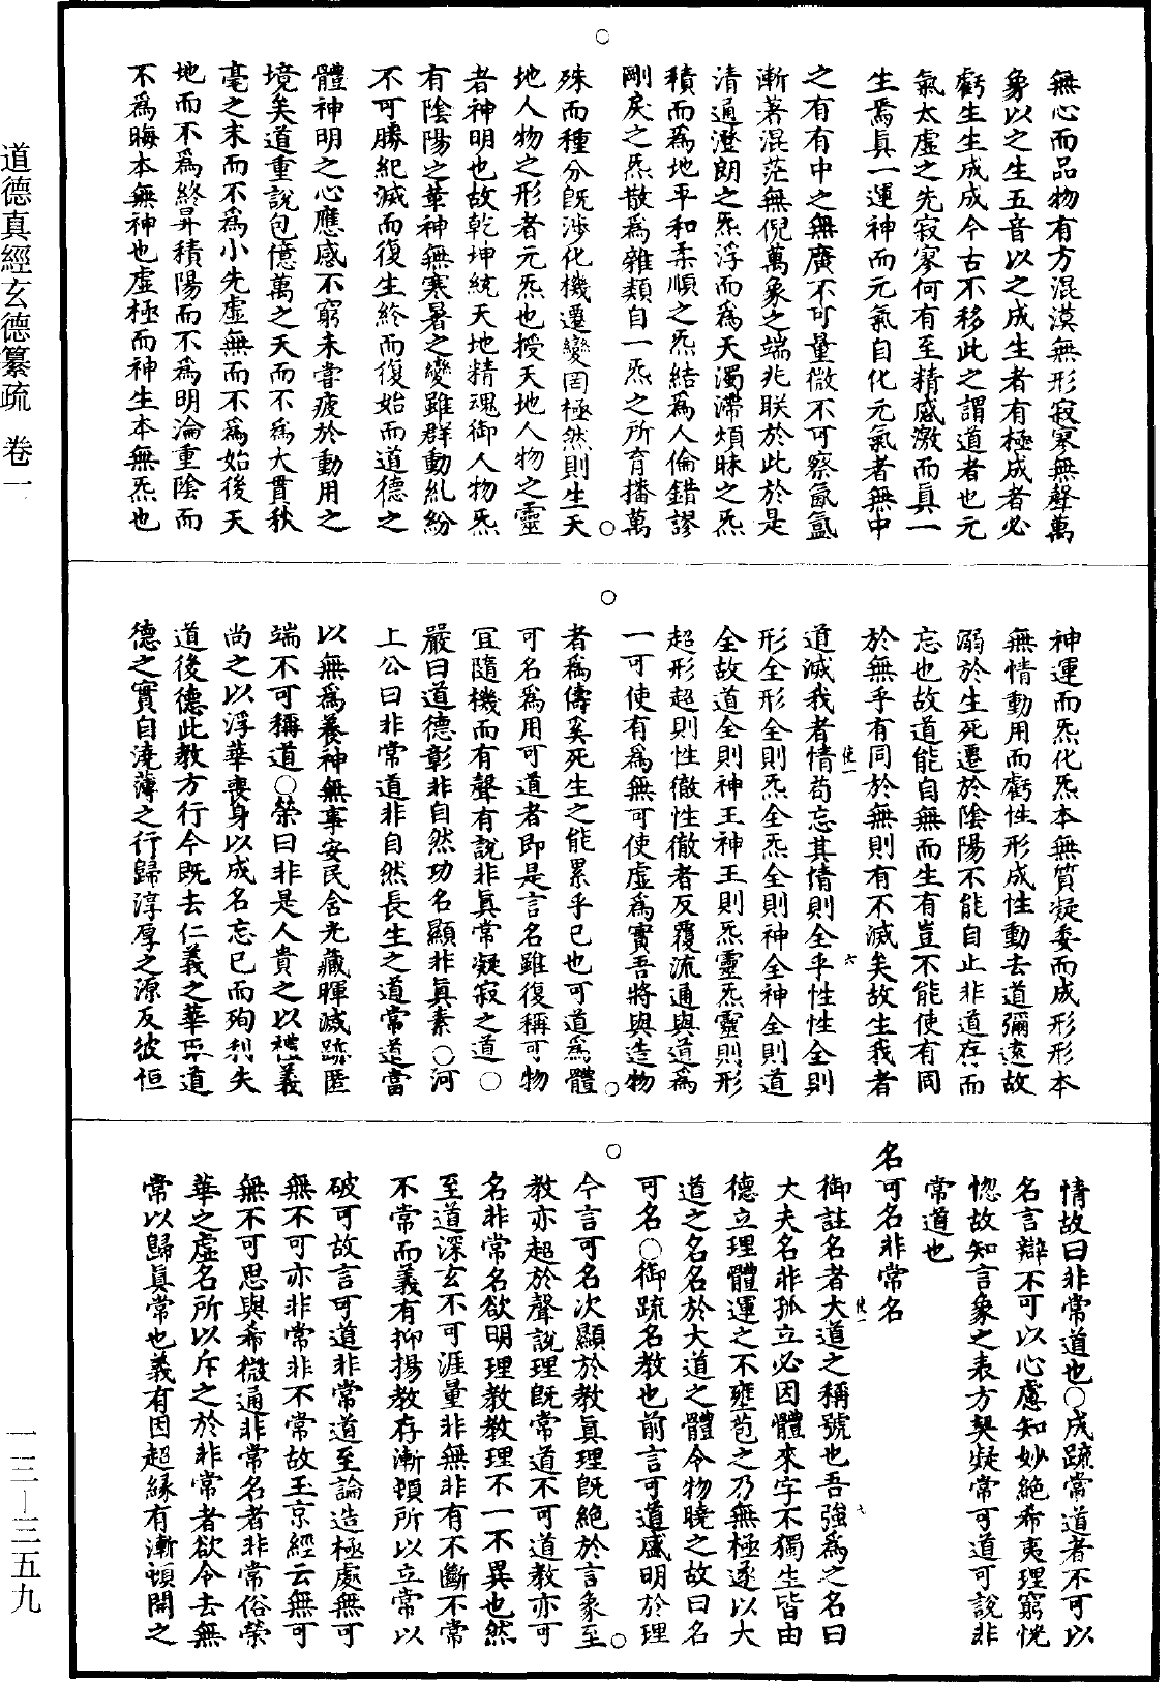 無心而品物有方混漠無形寂寥無聲萬
象以之生五音以之成生者有極成者必
虧生生成成今古不移此之謂道者也元
氣太虛之先寂寥何有至精感激而真一
生焉真一運神而元氣自化元氣者無中
之有有中之無廣不可量微不可察氤氳
漸著混茫無倪萬象之端兆朕於此於是
清通澄朗之炁浮而為天濁滯煩昧之炁
積而為地平和柔順之炁結為人倫錯謬
剛戾之炁散為雜類自一炁之所育播萬
殊而種分旣涉化機遷變罔極然則生天
地人物之形者元炁也授天地人物之靈
者神明也故乾坤統天地精魂御人物炁
有陰陽之革神無寒暑之變雖群動糺紛
不可勝紀滅而復生終而復始而道德之
體神明之心應感不窮未嘗疲於動用之
境矣道重說包億萬之天而不為大貫秋
毫之末而不為小先虛無而不為始後天
地而不為終昇積陽而不為明淪重陰而
不為晦本無神也虛極而神生本無炁也
神運而炁化炁本無質凝委而成形形本
無情動用而虧性形成性動去道彌遠故
溺於生死遷於陰陽不能自止非道存而
忘也故道能自無而生有豈不能使有同
於無乎有同於無則有不滅矣故生我者
道滅我者情苟忘其情則全乎性性全則
形全形全則炁全炁全則神全神全則道
全故道全則神王神王則炁靈炁靈則形
超形超則性徹性徹者反覆流通與道為
一可使有為無可使虛為實吾將與造物
者為儔奚死生之能累乎已也可道為體
可名為用可道者即是言名雖復稱可物
冝隨機而有聲有說非真常凝寂之道○
嚴曰道德彰非自然功名顯非真素○河
上公曰非常道非自然長生之道常道當
以無為養神無事安民含光藏暉滅跡匿
端不可稱道○榮曰非是人貴之以禮義
尚之以浮華喪身以成名忘已而殉利失
道後德此教方行今既去仁義之華取道
德之實自澆薄之行歸淳厚之源反彼恒
情故曰非常道也○成疏常道者不可以
名言辯不可以心慮知妙絕希夷理窮恍
惚故知言象之表方契凝常可道可說非
常道也
名可名非常名
御註名者大道之稱號也吾強為之名曰
大夫名非孤立必因體來字不獨生皆由
德立理體運之不壅苞之乃無極遂以大
道之名名於大道之體令物曉之故曰名
可名○御疏名教也前言可道盛明於理
今言可名次顯於教真理旣絕於言象至
教亦超於聲說理旣常道不可道教亦可
名非常名欲明理教教理不一不異也然
至道深玄不可涯量非無非有不斷不常
不常而義有抑揚教存漸頓所以立常以
破可故言可道非常道至論造極處無可
無不可亦非常非不常故玉京經云無可
無不可思與希微通非常名者非常俗榮
華之虛名所以斥之於非常者欲令去無
常以歸真常也義有因超緣有漸頓開之
道德真經玄德纂疏 卷一
一三—三五九